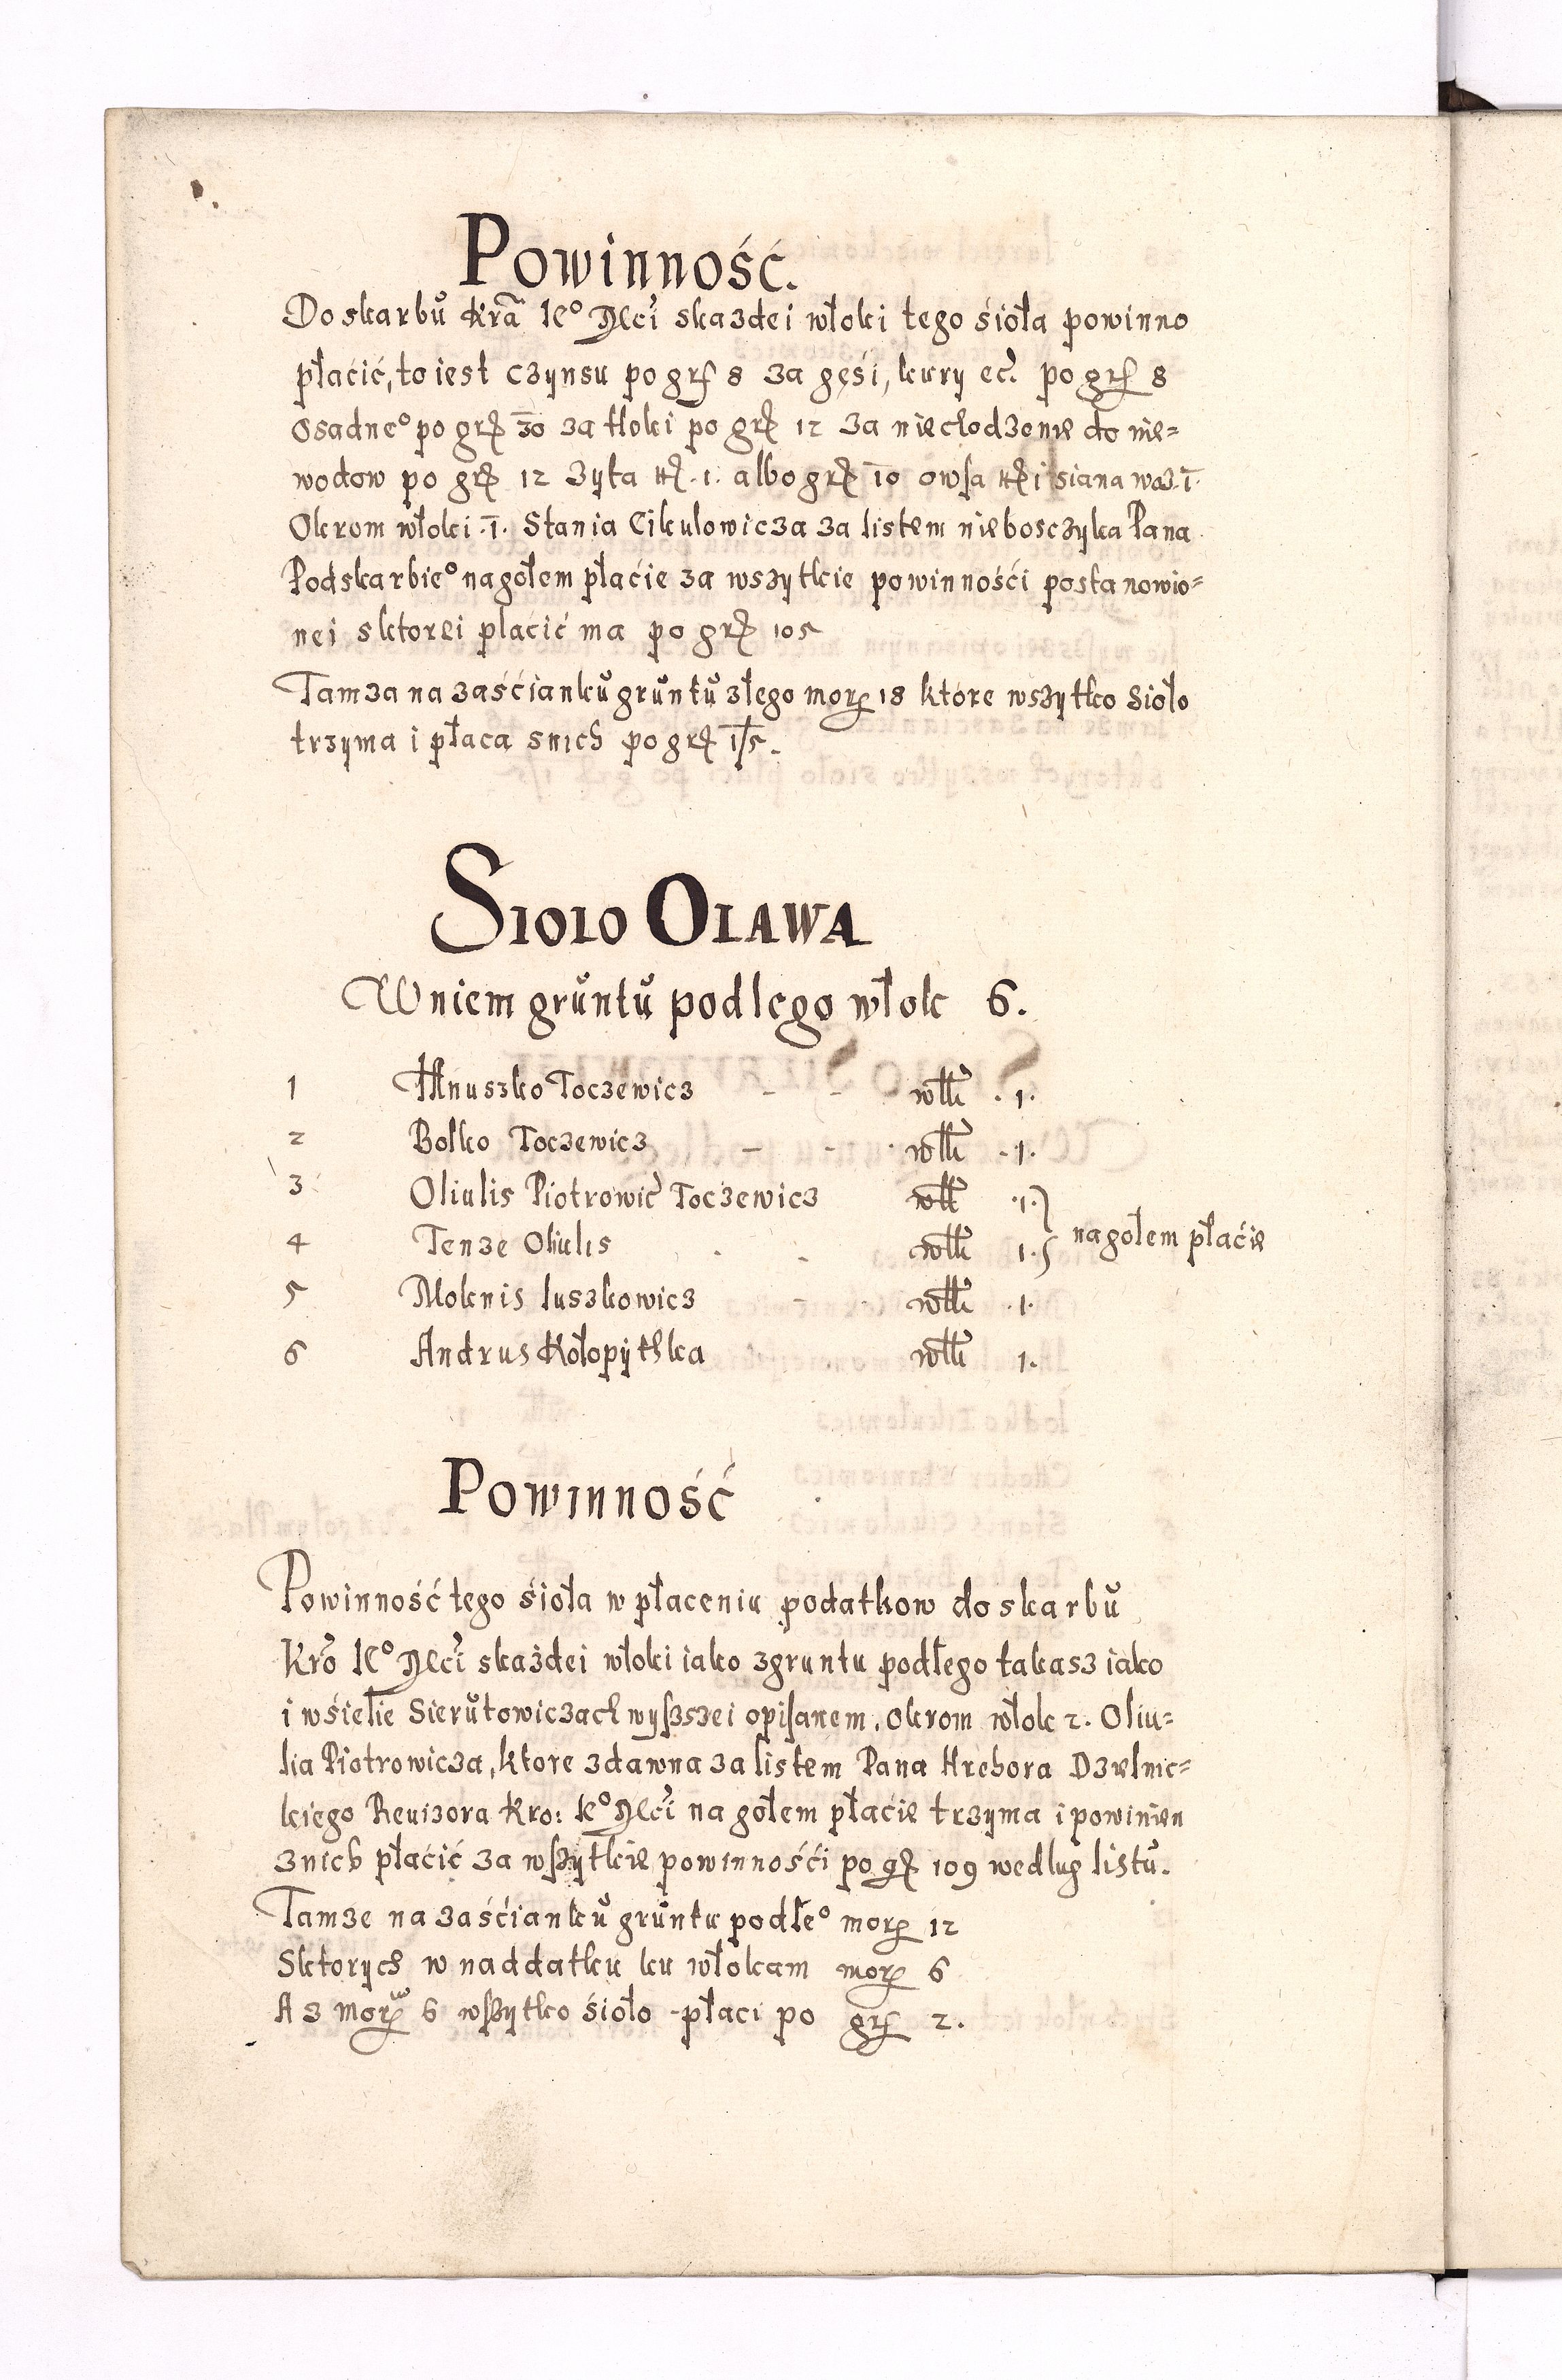 Powinność.
Do skarbŭ Kra Ie° Mci skazdei włoki tego śioła powinno
płaćić, to iest czynsu po grß 8 za gęśi, kury ec. po grß 8
Osadne° po grß 30 za tłoki po grß 12 za niechodzenie do nie=
wodow po grß 12 zyta 1. albo grß 10 owsa 1 siana woz. 1.
Okrom włoki .1. Stania Cikulowicza za listem nieboszczyka Pana
Podskarbie° na gołem płaćie za wszytkie powinnośći postanowio=
nei sktorei płaćić ma po grß 105
Tamza na zaśćiankŭ grŭntŭ złego morg 18 ktore wszytko Sioło
trzyma i płaca snich po grß 1/5.
SIOLO OLAWA
W niem grŭntŭ podlego włok 6.
1 Hanuszko Toczewicz - - włk .1.
2 Bolko Toczewicz - - włk .1.
3 Oliulis Piotrowic Toczewicz włk .1.
4 Tenze Oliulis włk 1. na gołem płaćie
5 Moknis Iuszkowicz - włk .1.
6 Andrus Kołopythka włk 1.
Powinność
Powinność tego śioła w płaceniu podatkow do skarbŭ
Kro Ie° Mci skażdei włoki iako zgruntu podłego takasz iako
i wśielie Sierŭtowiczach wyszszei opisanem. Okrom włok 2. Oliu=
lia Piotrowicza, ktore zdawna za listem Pana Hrehora Dzielnic=
kiego Reuizora Kro: Ie° Mci na gołem płaćie trzyma i powinien
znich płaćić za wszytkie powinnośći po gß 109 wedlug listŭ.
Tamze na zaśćiankŭ grŭntu podłe° morg 12
Sktorych w naddatku ku włokam morg 6
A z morgw 6 wszytko śioło płaci po grß 2.